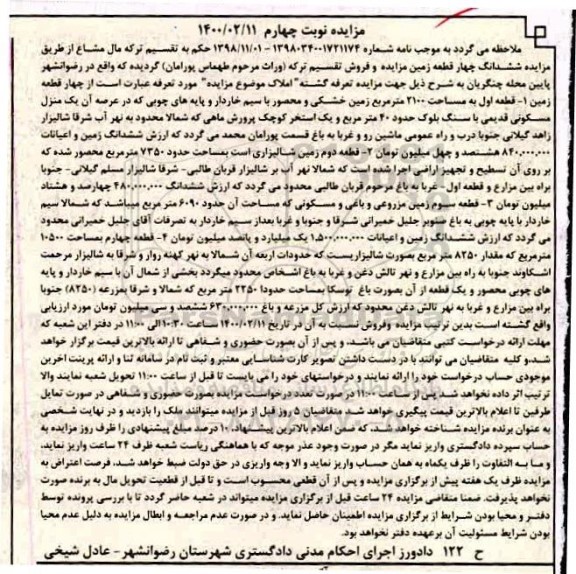 مزایده نوبت چهارم ۱۴۰۰/۰۲/۱۱
ملاحظه می گردد به موجب نامه شماره ۱۳۹۸۰۳۴۰۰۱۷۲۱۱۷۴ – ۱۳۹۸/۱۱/۰۱ حکم به تقسیم ترکه مال مشاع از طریق
مزایده ششدانگ چهار قطعه زمین مزایده و فروش تقسیم ترکه (وراث مرحوم طهماس پورامان) گردیده که واقع در رضوانشهر
پایین محله چنگریان به شرح ذیل جهت مزایده تعرفه گشته "املاک موضوع مزایده" مورد تعرفه عبارت است از چهار قطعه
زمین ۱- قطعه اول به مساحت ۲۱۰۰ مترمربع زمین خشکی و محصور با سیم خاردار و پایه های چوبی که در عرصه آن یک منزل
مسکونی قدیمی با سنگ بلوک حدود ۴۰ متر مربع و یک استخر کوچک پرورش ماهی که شمالا محدود به نهر آب شرقا شالیزار
زاهد گیلانی جنوبا درب و راه عمومی ماشین رو و غربا به باغ قسمت پورامان محمد می گردد که ارزش ششدانگ زمین و اعیانات
۸۴۰,۰۰۰,۰۰۰ هشتصد و چهل میلیون تومان ۲- قطعه دوم زمین شالیزاری است بمساحت حدود ۷۳۵۰ مترمربع محصور شده که
بر روی آن تسطیح و تجهیز اراضی اجرا شده است که شمالا نهر آب بر شالیزار قربان طالبی- شرقا شالیزار مسلم گیلانی- جنوبا
براه بین مزارع و قطعه اول - غربا به باغ مرحوم قربان طالبی محدود می گردد که ارزش ششدانگ ۴۸۰,۰۰۰,۰۰۰ چهارصد و هشتاد
میلیون تومان ۳- قطعه سوم زمین مزروعی و باغی و مسکونی که مساحت آن حدود ۶۰۹۰ متر مربع میباشد که شمالا سیم
خاردار با پایه چوبی به باغ صنوبر جلیل خمیرانی شرقا و جنوبا و غربا بعداز سیم خاردار به تصرفات آقای جلیل خمیرانی محدود
می گردد که ارزش ششدانگ زمین و اعیانات ۱,۵۰۰,۰۰۰,۰۰۰ یک میلیارد و پانصد میلیون تومان ۴- قطعه چهارم بمساحت ۱۰۵۰۰
مترمربع که مقدار ۸۲۵۰ متر مربع بصورت شالیزاریست که حدودات اربعه آن شمالا به نهر کهنه روار و شرقا به شالیزار مرحمت
اشکاوند جنوبا به راه بین مزارع و نهر تالش دغن و غربا به باغ اشخاص محدود میگردد بخشی از شمال آن با سیم خاردار و پایه
های چوبی محصور و یک قطعه از آن بصورت باغ توسکا بمساحت حدودا ۲۲۵۰ متر مربع که شمالا و شرقا بمزرعه (۸۲۵۰) جنوبا
براه بین مزارع و غربا به نهر تالش دغن محدود که ارزش کل مزرعه و باغ ۶۳۰,۰۰۰,۰۰۰ ششصد و سی میلیون تومان مورد ارزیابی
واقع گشته است بدین ترتیب مزایده وفروش نسبت به آن در تاریخ ۱۴۰۰/۰۲/۱۱ ساعت ۱۰:۳۰ الی ۱۱:۰۰ در دفتر این شعبه که
مهلت ارائه درخواست کتبی متقاضیان می باشد، و پس از آن بصورت حضوری و شفاهی تا ارائه بالاترین قیمت برگزار خواهد
شد،و کلیه متقاضیان می توانند با در دست داشتن تصویر کارت شناسایی معتبر و ثبت نام در سامانه ثنا و ارائه پرینت اخرین
موجودی حساب درخواست خود را ارائه نمایند و درخواستهای خود را می بایست تا قبل از ساعت ۱۱:۰۰ تحویل شعبه نمایند والا
ترتیب اثر داده نخواهد شد پس از ساعت ۱۱:۰۰ در صورت تعدد درخواست مزایده بصورت حضوری و شفاهی در صورت تمایل
طرفین تا اعلام بالاترین قیمت پیگیری خواهد شد متقاضیان ۵ روز قبل از مزایده میتوانند ملک را بازدید و در نهایت شخصی
به عنوان برنده مزایده شناخته خواهد شد، که ضمن اعلام بالاترین پیشنهاد، ۱۰ درصد مبلغ پیشنهادی را ظرف روز مزایده به
حساب سپرده دادگستری واریز نماید مگر در صورت وجود عذر موجه که با هماهنگی ریاست شعبه ظرف ۲۴ ساعت واریز نماید،
و مـا بـه التفاوت را ظرف یکماه به همان حساب واریز نماید و الا وجه واریزی در حق دولت ضبط خواهد شد، فرصت اعتراض به
مزایده ظرف یک هفته پیش از برگزاری مزایده و پس از آن قطعی محسوب است و تا قبل از قطعیت تحویل مال به برنده صورت
نخواهد پذیرفت. ضمنا متقاضی مزایده ۲۴ ساعت قبل از برگزاری مزایده میتواند در شعبه حاضر گردد تا با بررسی پرونده توسط
دفتـر و محیا بودن شرایط از برگزاری مزایده اطمینان حاصل نماید. و در صورت عدم مراجعـه و ابطال مزایده به دلیل عدم محیا
بودن شرایط مسئولیت آن برعهده دفتر نخواهد بود.
ح ۱۲۲ دادورز اجرای احکام مدنی دادگستری شهرستان رضوانشهر- عادل شیخی